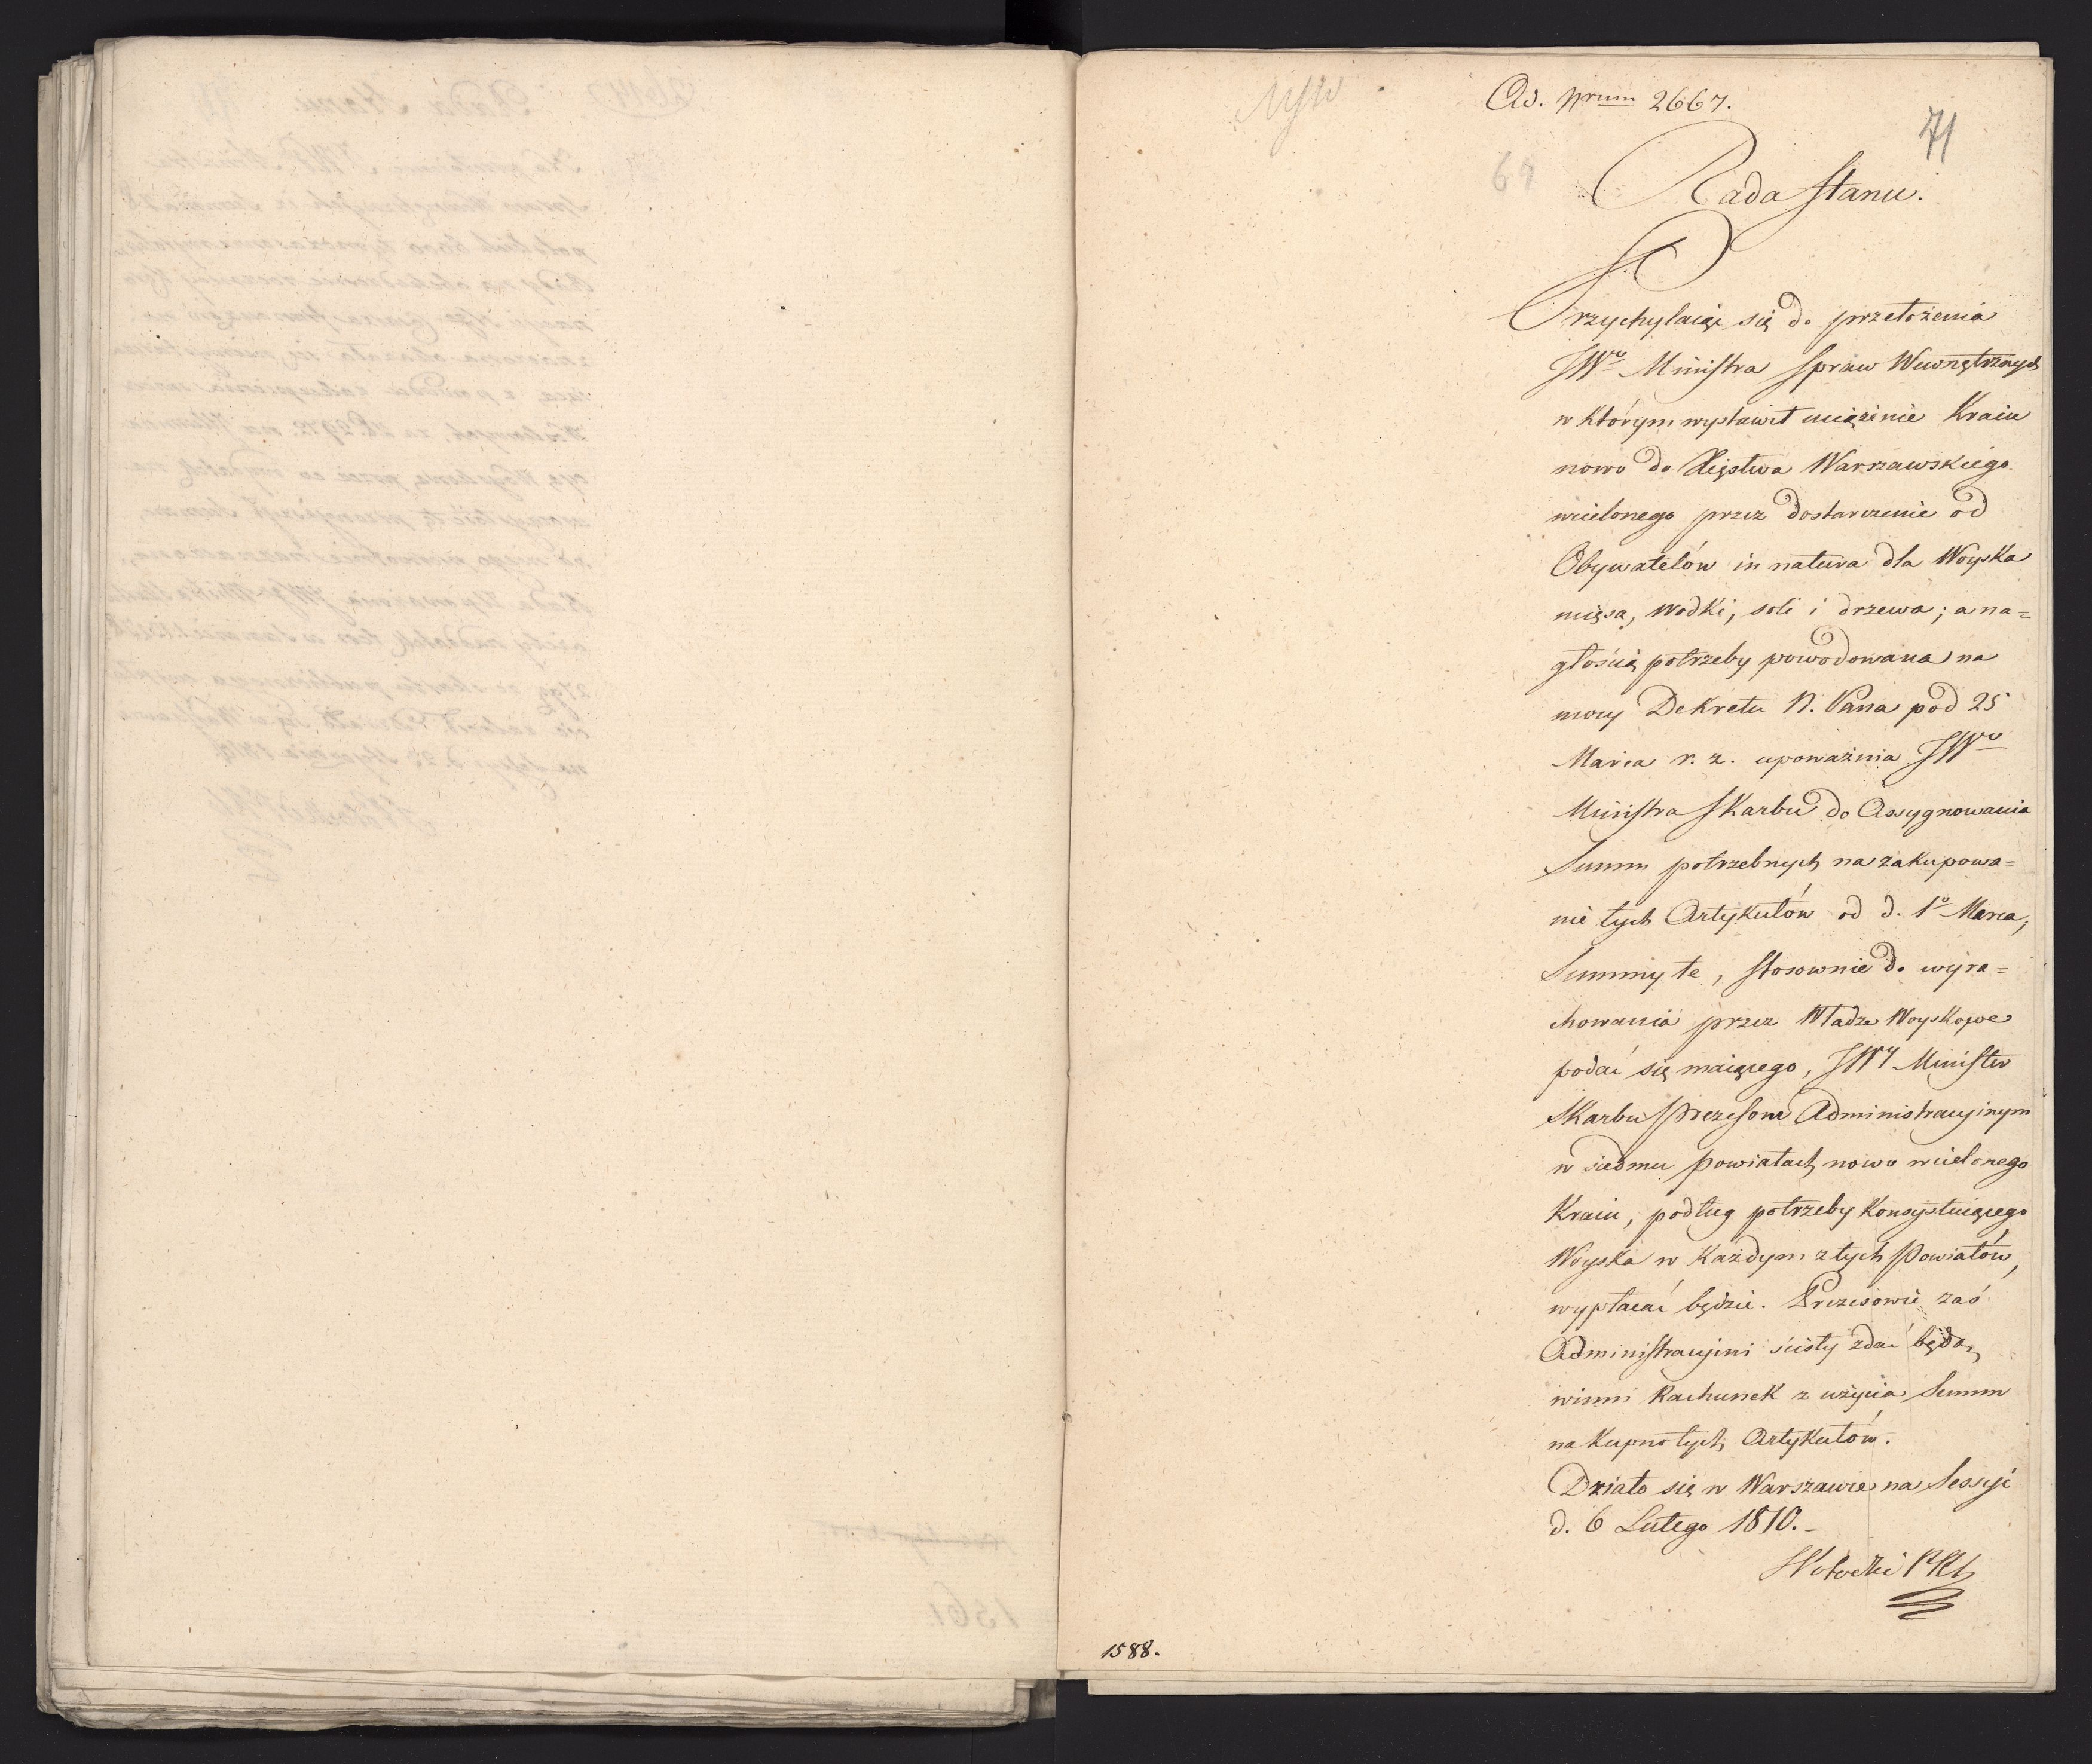 Ad. Nrum 2667.
71
69
Rada Stanu.
Przychylaiąc się do przełożenia
JWo Ministra Spraw Wewnętrznych
w którym wystawił uciążenie Kraiu
nowo do Xięstwa Warszawskiego
wcielonego przez dostarczenie od
Obywatelów in natura dla Woyska
mięsa, wodki, soli i drzewa; a na=
głością potrzeby powodowana na
mocy Dekretu N. Pana pod 25
Marca r. z. upoważnia JWo
Ministra Skarbu do Assygnowania
Summ potrzebnych na zakupowa=
nie tych Artykułów od d. 1o Marca,
Summy te, stosownie do wyra=
chowania przez Władze Woyskowe
podać się maiącego, JWy Minister
Skarbu Prezesom Administracyinym
w siedmu Powiatach nowo wcielonego
Kraiu, podług potrzeby Konsystuiącego
Woyska w każdym z tych Powiatów,
wypłacać będzie. Prezesowie zaś
Administracyini ścisły zdać będą
winni Rachunek z użycia Summ
na kupno tych Artykułów.
Działo się w Warszawie na Sessyi
d. 6 Lutego 1810.-
1588.